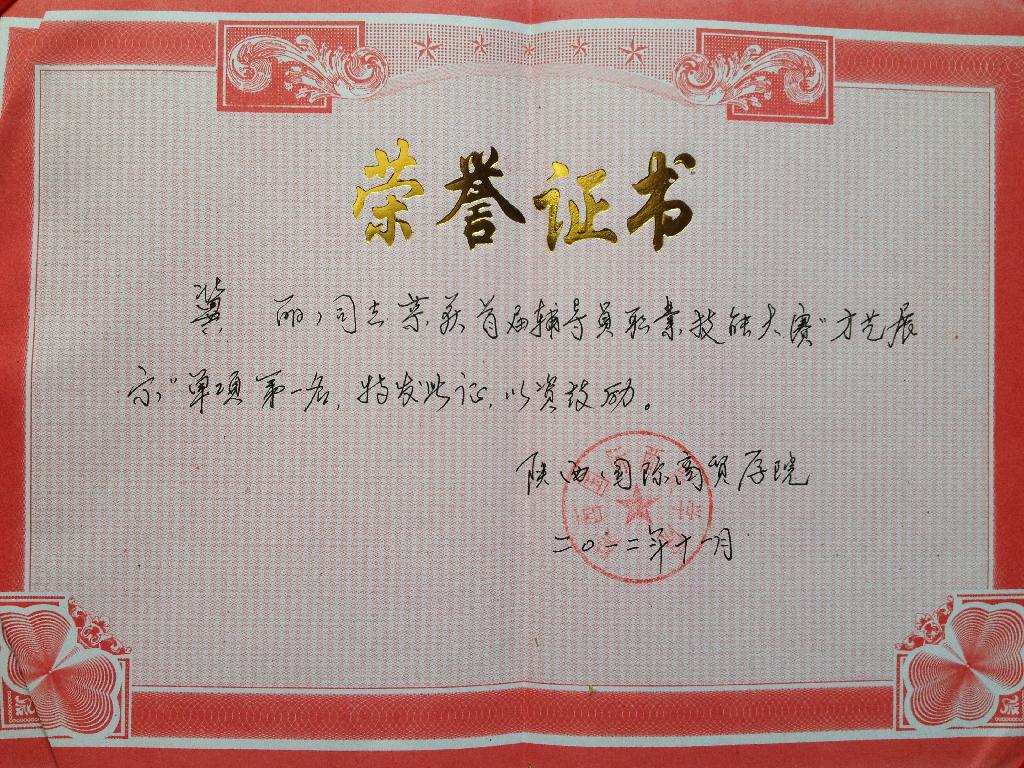 荣誉证书
冀丽同志荣获首届辅导员职业技能大赛“才艺展
示”单项第一名,特发此证,以资鼓励。
陕西国际商贸学院
二〇一二年十一月